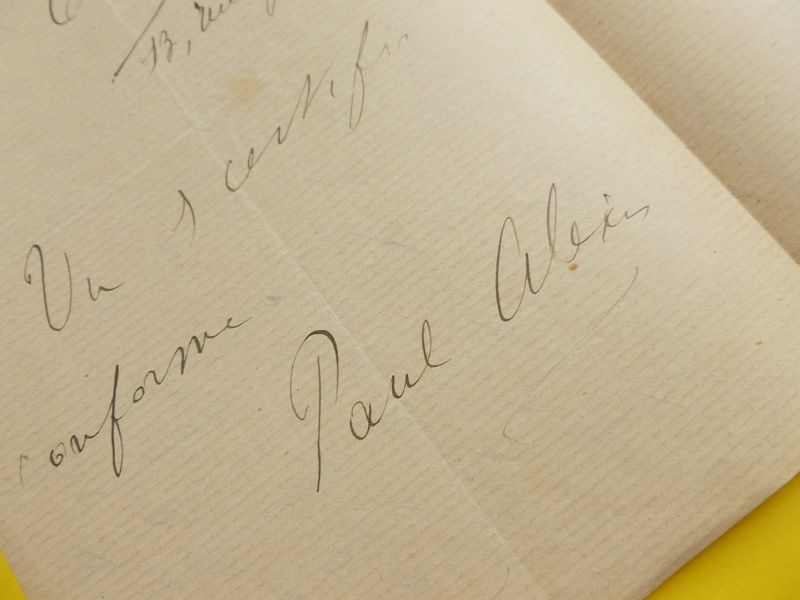 13, rue
Vu & certifié
conforme
Paul Alexis